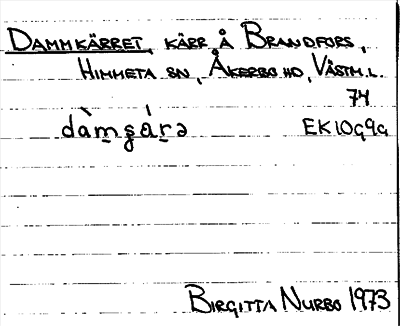 DAMMKÄRRET, KÄRR Å BRANDFORS,
HIMMETA SN, ÅKERBO HD, VÄSTM. L.
74
dàm̱ʂár̠ə EK 10g9g
BIRGITTA NURBO 1973